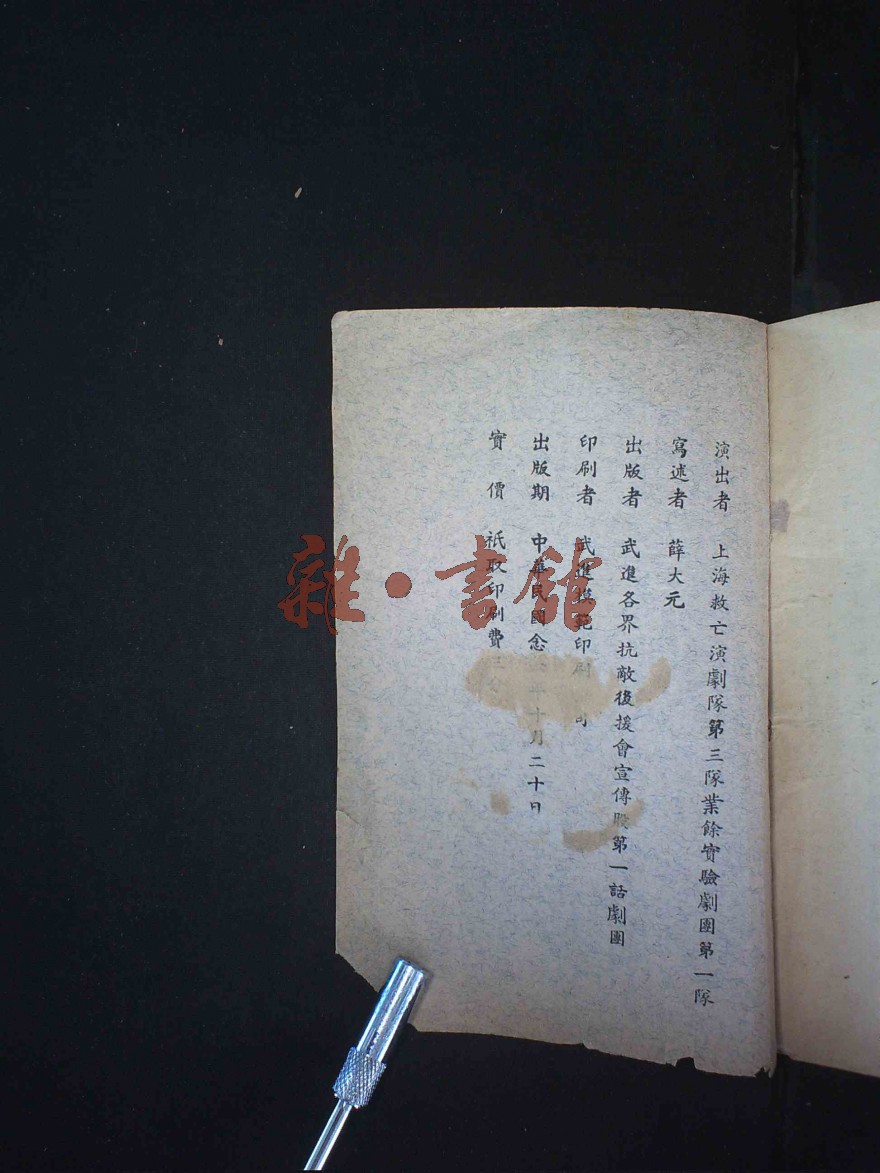 演出者 上海救亡演劇隊第三隊業餘實驗劇團第一隊
寫述者 薛大元
出版者 武進各界抗敵後援會宣傳股第一話劇團
印刷者 武進 印刷 司
出版期 中華民國念 年十月二十日
實價 祇取印刷費三分
雜·書館